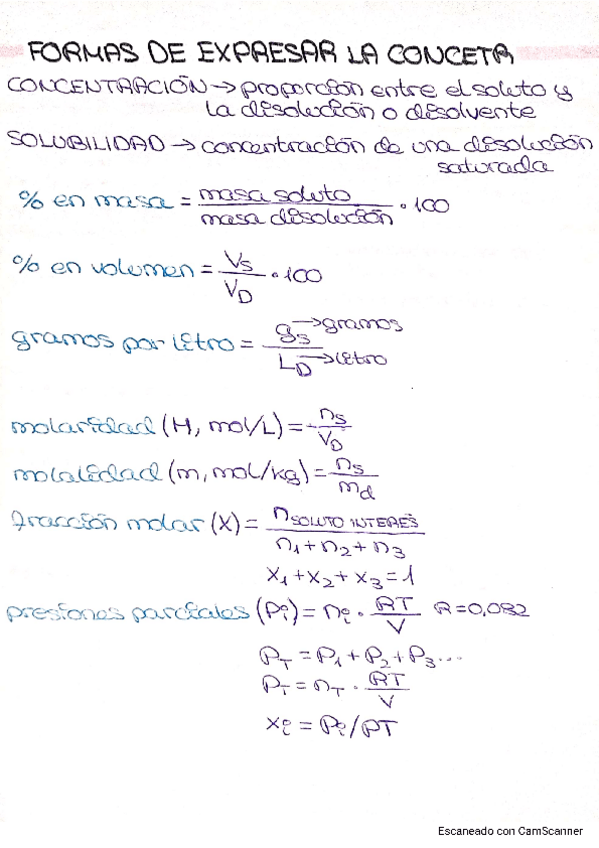 FORMAS DE EXPRESAR LA CONCETR
CONCENTRACIÓN → proporción entre el soluto y
la disolución o disolvente
SOLUBILIDAD → concentración de una disolución
saturada
% en masa = masa soluto / masa disolución · 100
% en volumen = Vs / VD · 100
gramos por litro = gs → gramos / LD → litro
molaridad (M, mol/L) = ns / VD
molalidad (m, mol/kg) = ns / md
fracción molar (X) = n SOLUTO INTERES / n1 + n2 + n3
x1 + x2 + x3 = 1
presiones parciales (Pi) = ni · RT / V R = 0,082
PT = P1 + P2 + P3...
PT = nT · RT / V
xi = Pi / PT
Escaneado con CamScanner